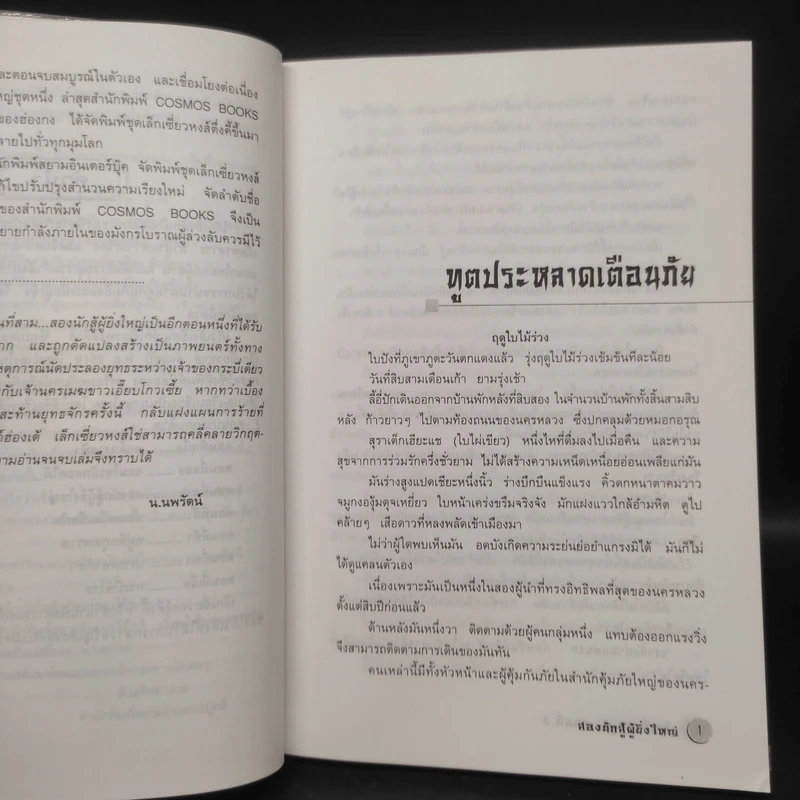 ละตอนจบสมบูรณ์ในตัวเอง และเชื่อมโยงต่อเนื่อง
ญ่ชุดหนึ่ง ล่าสุดสำนักพิมพ์ COSMOS BOOKS
ของฮ่องกง ได้จัดพิมพ์ชุดเล็กเซี่ยวหงส์ตึ่งคี้ขึ้นมา
ลายไปทั่วทุกมุมโลก
นักพิมพ์สยามอินเตอร์บุ๊ค จัดพิมพ์ชุดเล็กเซี่ยวหงส์
ก้ไขปรับปรุงสำนวนความเรียงใหม่ จัดลำดับชื่อ
ของสำนักพิมพ์ COSMOS BOOKS จึงเป็น
ยายกำลังภายในของมังกรโบราณผู้ล่วงลับควรมีไว้
นที่สาม...สองนักสู้ผู้ยิ่งใหญ่เป็นอีกตอนหนึ่งที่ได้รับ
าก และถูกดัดแปลงสร้างเป็นภาพยนตร์ทั้งทาง
หตุการณ์นัดประลองยุทธระหว่างเจ้าของกระบี่เดียว
กับเจ้านครเมฆขาวเอี๊ยบโกวเซี้ย หากทว่าเบื้อง
สะท้านยุทธจักรครั้งนี้ กลับแฝงแผนการร้ายที่
ค์ฮ่องเต้ เล็กเซี่ยวหงส์ใช่สามารถคลี่คลายวิกฤต-
ามอ่านจนจบเล่มจึงทราบได้
น.นพรัตน์
ทูตประหลาดเตือนภัย
ฤดูใบไม้ร่วง
ใบปังที่ภูเขาภูตะวันตกแดงแล้ว รุ่งฤดูใบไม้ร่วงเข้มข้นทีละน้อย
วันที่สิบสามเดือนเก้า ยามรุ่งเช้า
ลี้อี่ปักเดินออกจากบ้านพักหลังที่สิบสอง ในจำนวนบ้านพักทั้งสิ้นสามสิบ
หลัง ก้าวยาวๆ ไปตามท้องถนนของนครหลวง ซึ่งปกคลุมด้วยหมอกอรุณ
สุราเต็กเฮียะแช (ใบไผ่เขียว) หนึ่งไหที่ดื่มลงไปเมื่อคืน และความ
สุขจากการร่วมรักครึ่งชั่วยาม ไม่ได้สร้างความเหน็ดเหนื่อยอ่อนเพลียแก่มัน
มันร่างสูงแปดเชียะหนึ่งนิ้ว ร่างบึกบึนแข็งแรง คิ้วดกหนาตาคมวาว
จมูกงองุ้มดุจเหยี่ยว ใบหน้าเคร่งขรึมจริงจัง มักแฝงแววใกล้อำมหิต ดูไป
คล้ายๆ เสือดาวที่หลงพลัดเข้าเมืองมา
ไม่ว่าผู้ใดพบเห็นมัน อดบังเกิดความระย่นย่อยำแกรงมิได้ มันก็ไม่
ได้ดูแคลนตัวเอง
เนื่องเพราะมันเป็นหนึ่งในสองผู้นำที่ทรงอิทธิพลที่สุดของนครหลวง
ตั้งแต่สิบปีก่อนแล้ว
ด้านหลังมันหนึ่งวา ติดตามด้วยผู้คนกลุ่มหนึ่ง แทบต้องออกแรงวิ่ง
จึงสามารถติดตามการเดินของมันทัน
คนเหล่านี้มีทั้งหัวหน้าและผู้คุ้มกันภัยในสำนักคุ้มภัยใหญ่ของนคร-
สองนักสู้ผู้ยิ่งใหญ่ 1